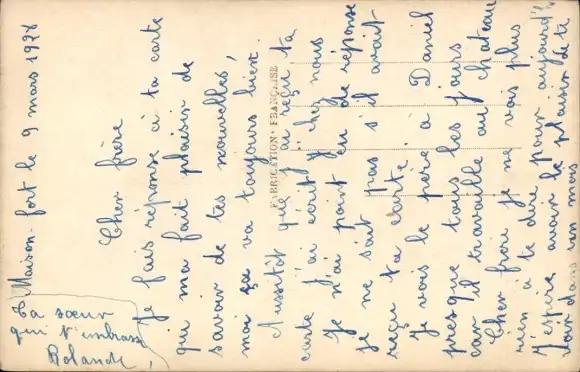 Maison-fort le 9 mars 1928
Cher frère
Je fais réponse à ta carte
qui ma fait plaisir de
savoir de tes nouvelles,
moi ça va toujours bien.
Aussitôt que j'ai reçu ta
carte j'ai écrit chez nous
Je n'ai point eu de réponse
je ne sait pas s'il avait
reçu ta carte.
Je vois le père à Daniel
presque tous les jours
car il travaille au château
Cher frère je ne vois plus
rien à te dire pour aujourd'
J'espère avoir le plaisir de te
voir dans un mois
Ta sœur
qui t'embrasse
Rolande
FABRICATION FRANÇAISE